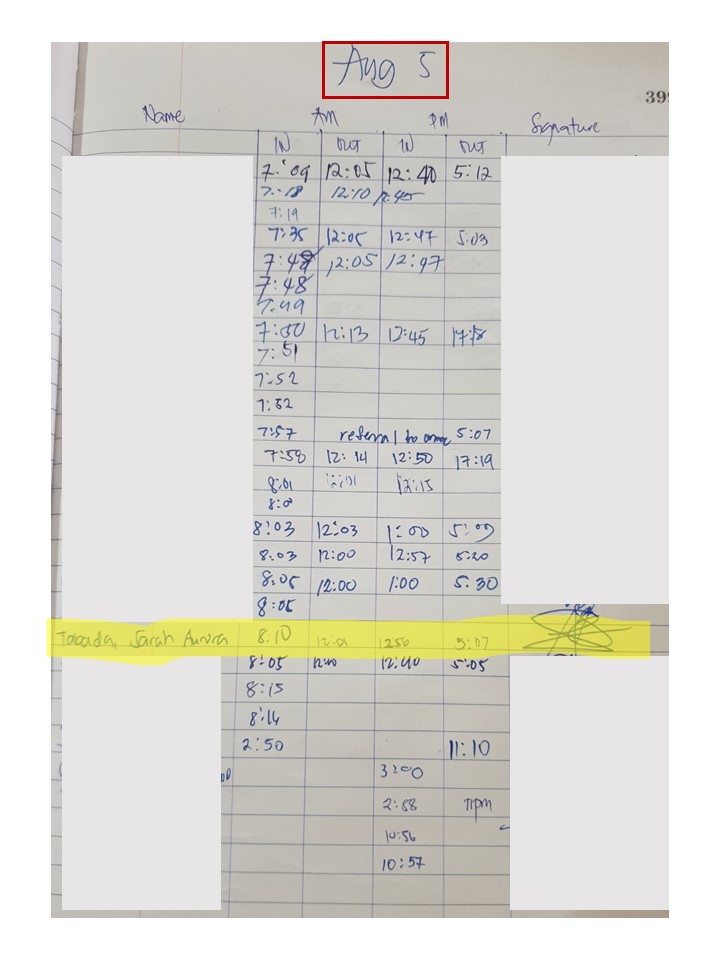 Aug 5
399
Name AM PM Signature
IN OUT IN OUT
7:09 12:05 12:40 5:12
7:18 12:10 12:45
7:19
7:35 12:05 12:47 5:03
7:48 12:05 12:47
7:48
7:49
7:50 12:13 12:45
7:51
7:52
7:52
7:57 referral to 5:07
7:58 12:14 12:50 17:19
8:01 12:01 12:15
8:03 12:03 1:00 5:09
8:03 12:00 12:57 5:20
8:05 12:00 1:00 5:30
8:05
Sarah Aurora 8:10 12:01 1256 5:07
8:05 12:40 5:05
8:15
8:14
2:50 11:10
3:00
2:58 11pm
10:56
10:57